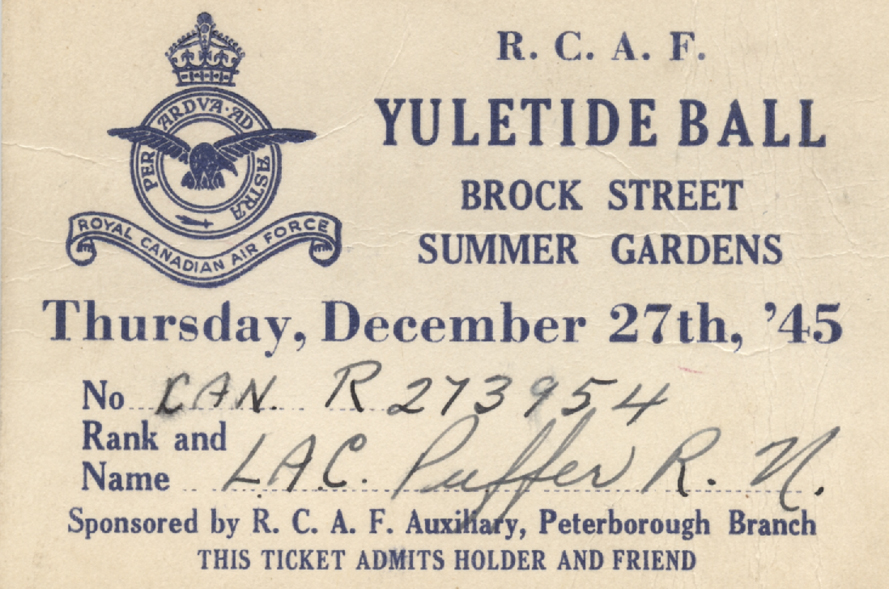 PER ARDVA·AD ASTRA
ROYAL CANADIAN AIR FORCE
R. C. A. F.
YULETIDE BALL
BROCK STREET
SUMMER GARDENS
Thursday, December 27th, '45
No CAN. R 273954
Rank and
Name LAC. Puffer R. N.
Sponsored by R. C. A. F. Auxiliary, Peterborough Branch
THIS TICKET ADMITS HOLDER AND FRIEND